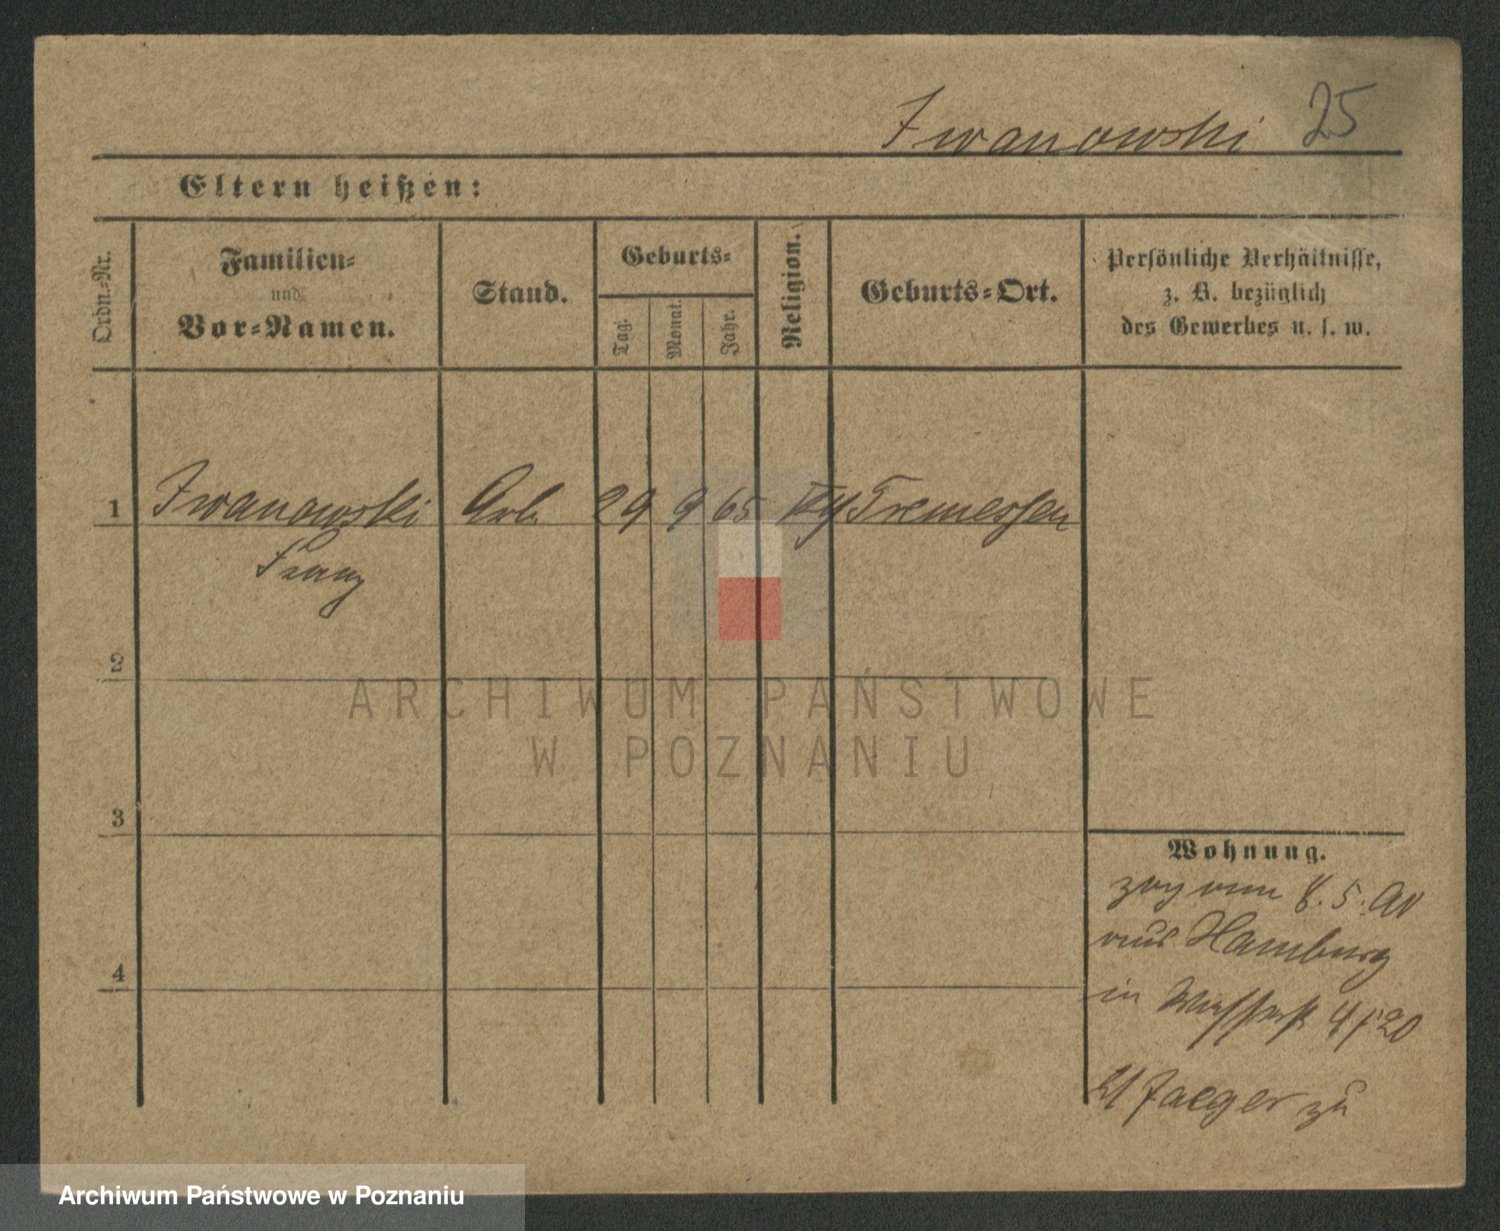 Iwanowski 25
Eltern heißen:
Ordn.-Nr.
Familien-
und
Vor-Namen.
Stand.
Geburts-
Tag.
Monat.
Jahr.
Religion.
Geburts-Ort.
Persönliche Verhältnisse,
z. B. bezüglich
des Gewerbes u. s. w.
1 Iwanowski Arb. 29 9 65 Tremessen
Franz
2
3
4
Wohnung.
zog vom 8. 5.
aus Hamburg
in 4/20
Jaeger zu
ARCHIWUM PAŃSTWOWE
W POZNANIU
Archiwum Państwowe w Poznaniu